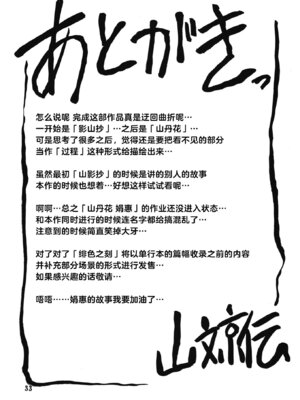 あとがきっ
怎么说呢 完成这部作品真是迂回曲折呢…
一开始是「影山抄」…之后是「山丹花」…
可是思考了很多之后，觉得还是要把看不见的部分
当作「过程」这种形式给描绘出来…
虽然最初「山影抄」的时候是讲的别人的故事
本作的时候也想着…好想这样试试看呢…
啊啊…总之「山丹花 娟惠」的作业还没进入状态…
和本作同时进行的时候连名字都给搞混乱了…
注意到的时候简直笑掉大牙…
对了对了「绯色之刻」将以单行本的篇幅收录之前的内容
并补充部分场景的形式进行发售…
如果感兴趣的话敬请…
唔唔……娟惠的故事我要加油了…
山文京伝
33